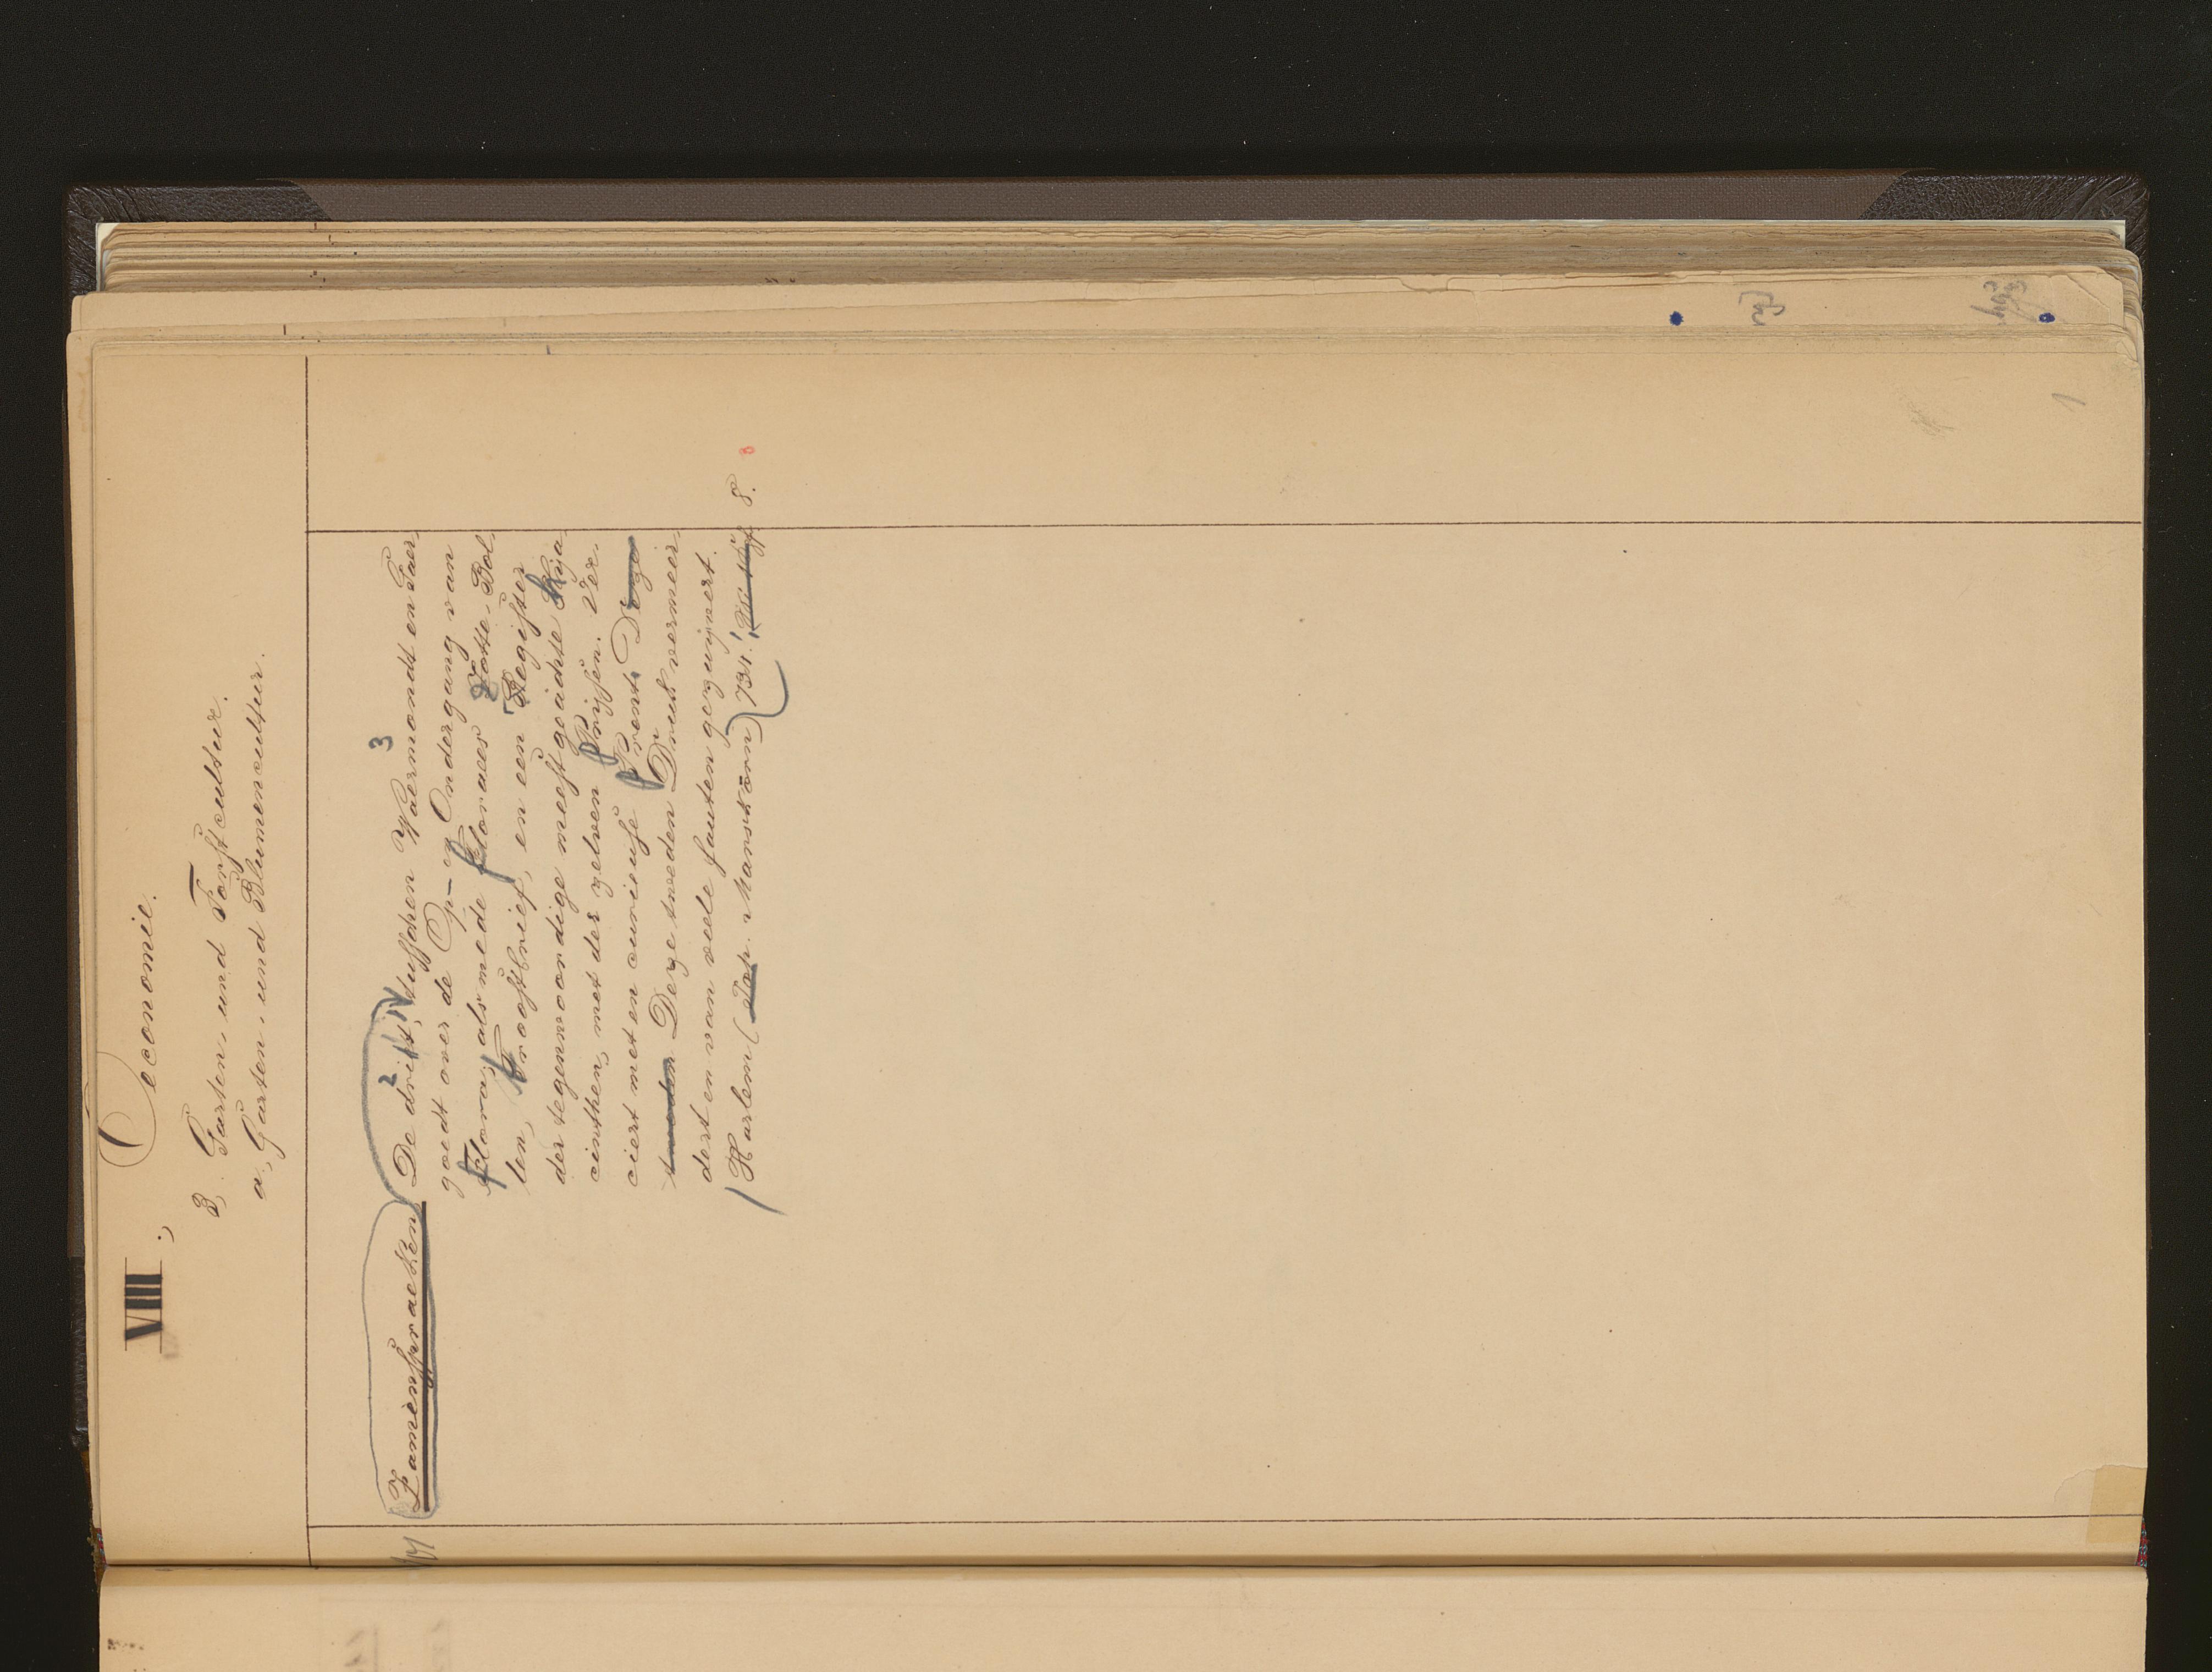 VIII., Oeconomie.
3, Garten- und Forstcultur.
a, Garten- und Blumencultur.
Zamenspraeken De drie, tusschen Waermondt en Gaer
goedt over de Op- en Ondergang van
Flora, als mede Floraas Zotte-Bol-
len, Troostbrief, en een Register
der tegenwoordige meest geachte Hya
cinthen, met der zelven Prijsen. Ver-
ciert met en curieuse Prent. Deze
tweeden Deze tweeden Druk vermeer-
dert en van veele fauten gezuijvert.
Harlem (Joh. Marshoorn) 734. 8.
2
3